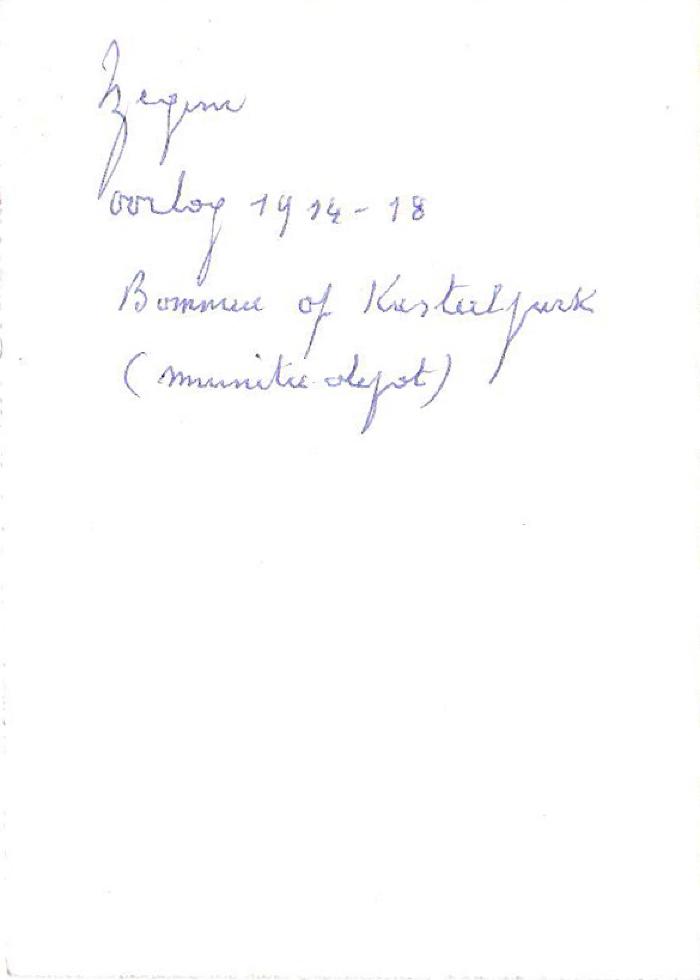 Izegem
oorlog 1914-18
Bommen op Kasteelpark
(munitie depot)